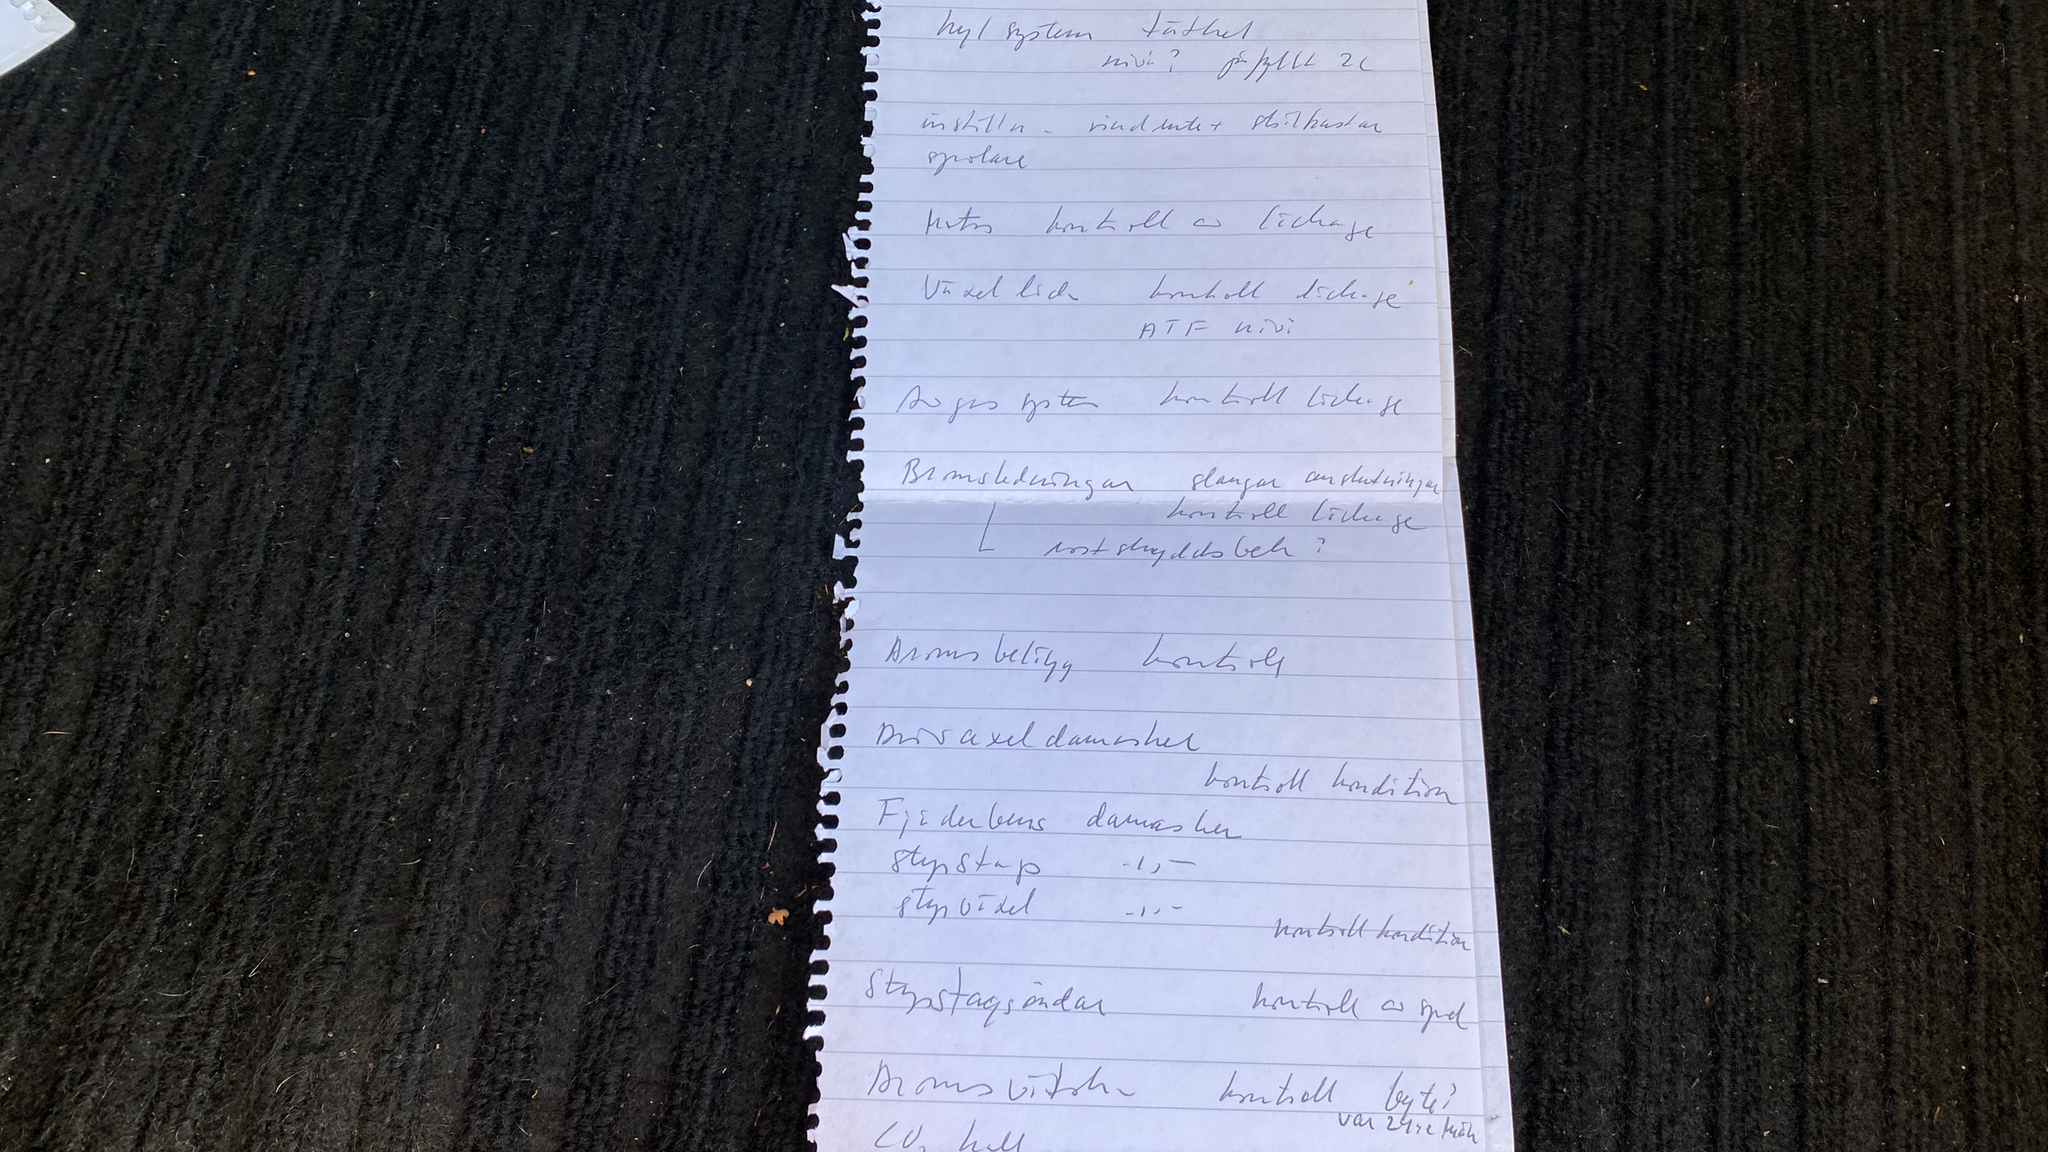 kyl system täthet
nivå? påfyllt 2L
inställn - vindrute + strålkastar
spolare
Motor kontroll av läckage
Växel låda kontroll läckage
ATF nivå
Avgas system kontroll läckage
Bromsledningar slangar anslutningar
kontroll läckage
rostskyddsbeh?
Bromsbelägg kontroll
Drivaxeldamasker
kontroll kondition
Fjäderbens damasker
styrstag -"-
styrväxel -"-
kontroll kondition
Styrstagsändar kontroll av spel
Bromsvätska kontroll byte?
var 24:e mån
CO halt